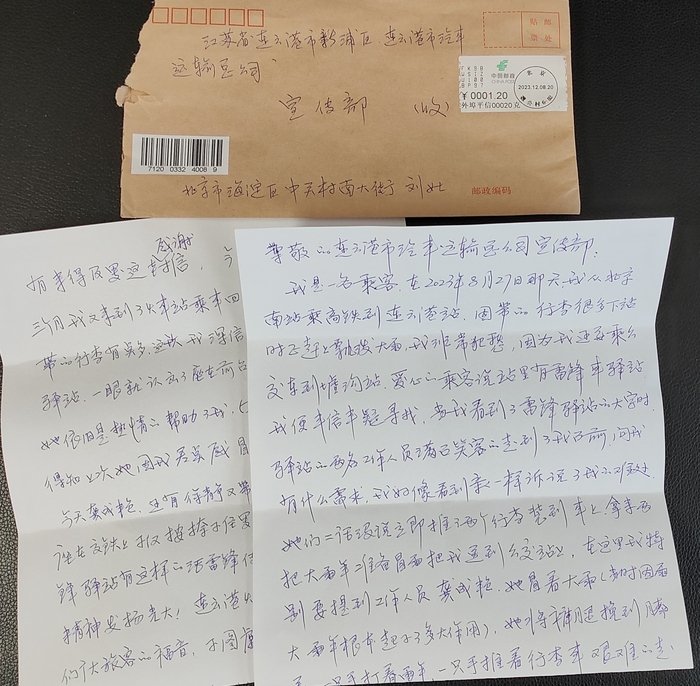 贴 邮
票 处
江苏省连云港市新浦区 连云港市汽车
运输总公司
中国邮政
CHINA POST
¥ 0001.20
外埠平信00020克
2023.12.08.20
宣传部 (收)
7120 0332 4008 9
北京市海淀区中关村南大街 刘
邮政编码
感谢
有幸得及要这封信,今
三月我又来到了火车站乘车回
带的行李有点多,这次我深信
驿站,一眼就认出了座在前台
她依旧是热情的帮助了我,
得知上次她因我着点感冒
今天龚成艳,还有
锋驿站有这样的活雷锋
精神发扬光大!连云港火
们大旅客的福音,
尊敬的连云港市汽车运输总公司宣传部:
我是一名乘客,在2023年8月27日那天我从北京
南站乘高铁到连云港站,因带的行李很多下站
时正赶上瓢拨大雨,我非常犯愁,因为我还要乘公
交车到堆沟站,爱心的乘客说站里有雷锋车驿站
我便半信半疑寻找,当我看到了雷锋驿站的大字时,
驿站的两名工作人员满面笑容的走到了我面前,问我
有什么需求,我好像看到亲人一样诉说了我的难处
她们二话没说立即推了两个行李装到车上,拿来两
把大雨伞准备冒雨把我送到公交站上,在这里我特
别要提到工作人员龚成艳,她冒着大雨(当时因雨
大雨伞根本起不了多大作用),她将裤腿挽到膝
盖,一只手打着雨伞,一只手推着行李车艰难的走